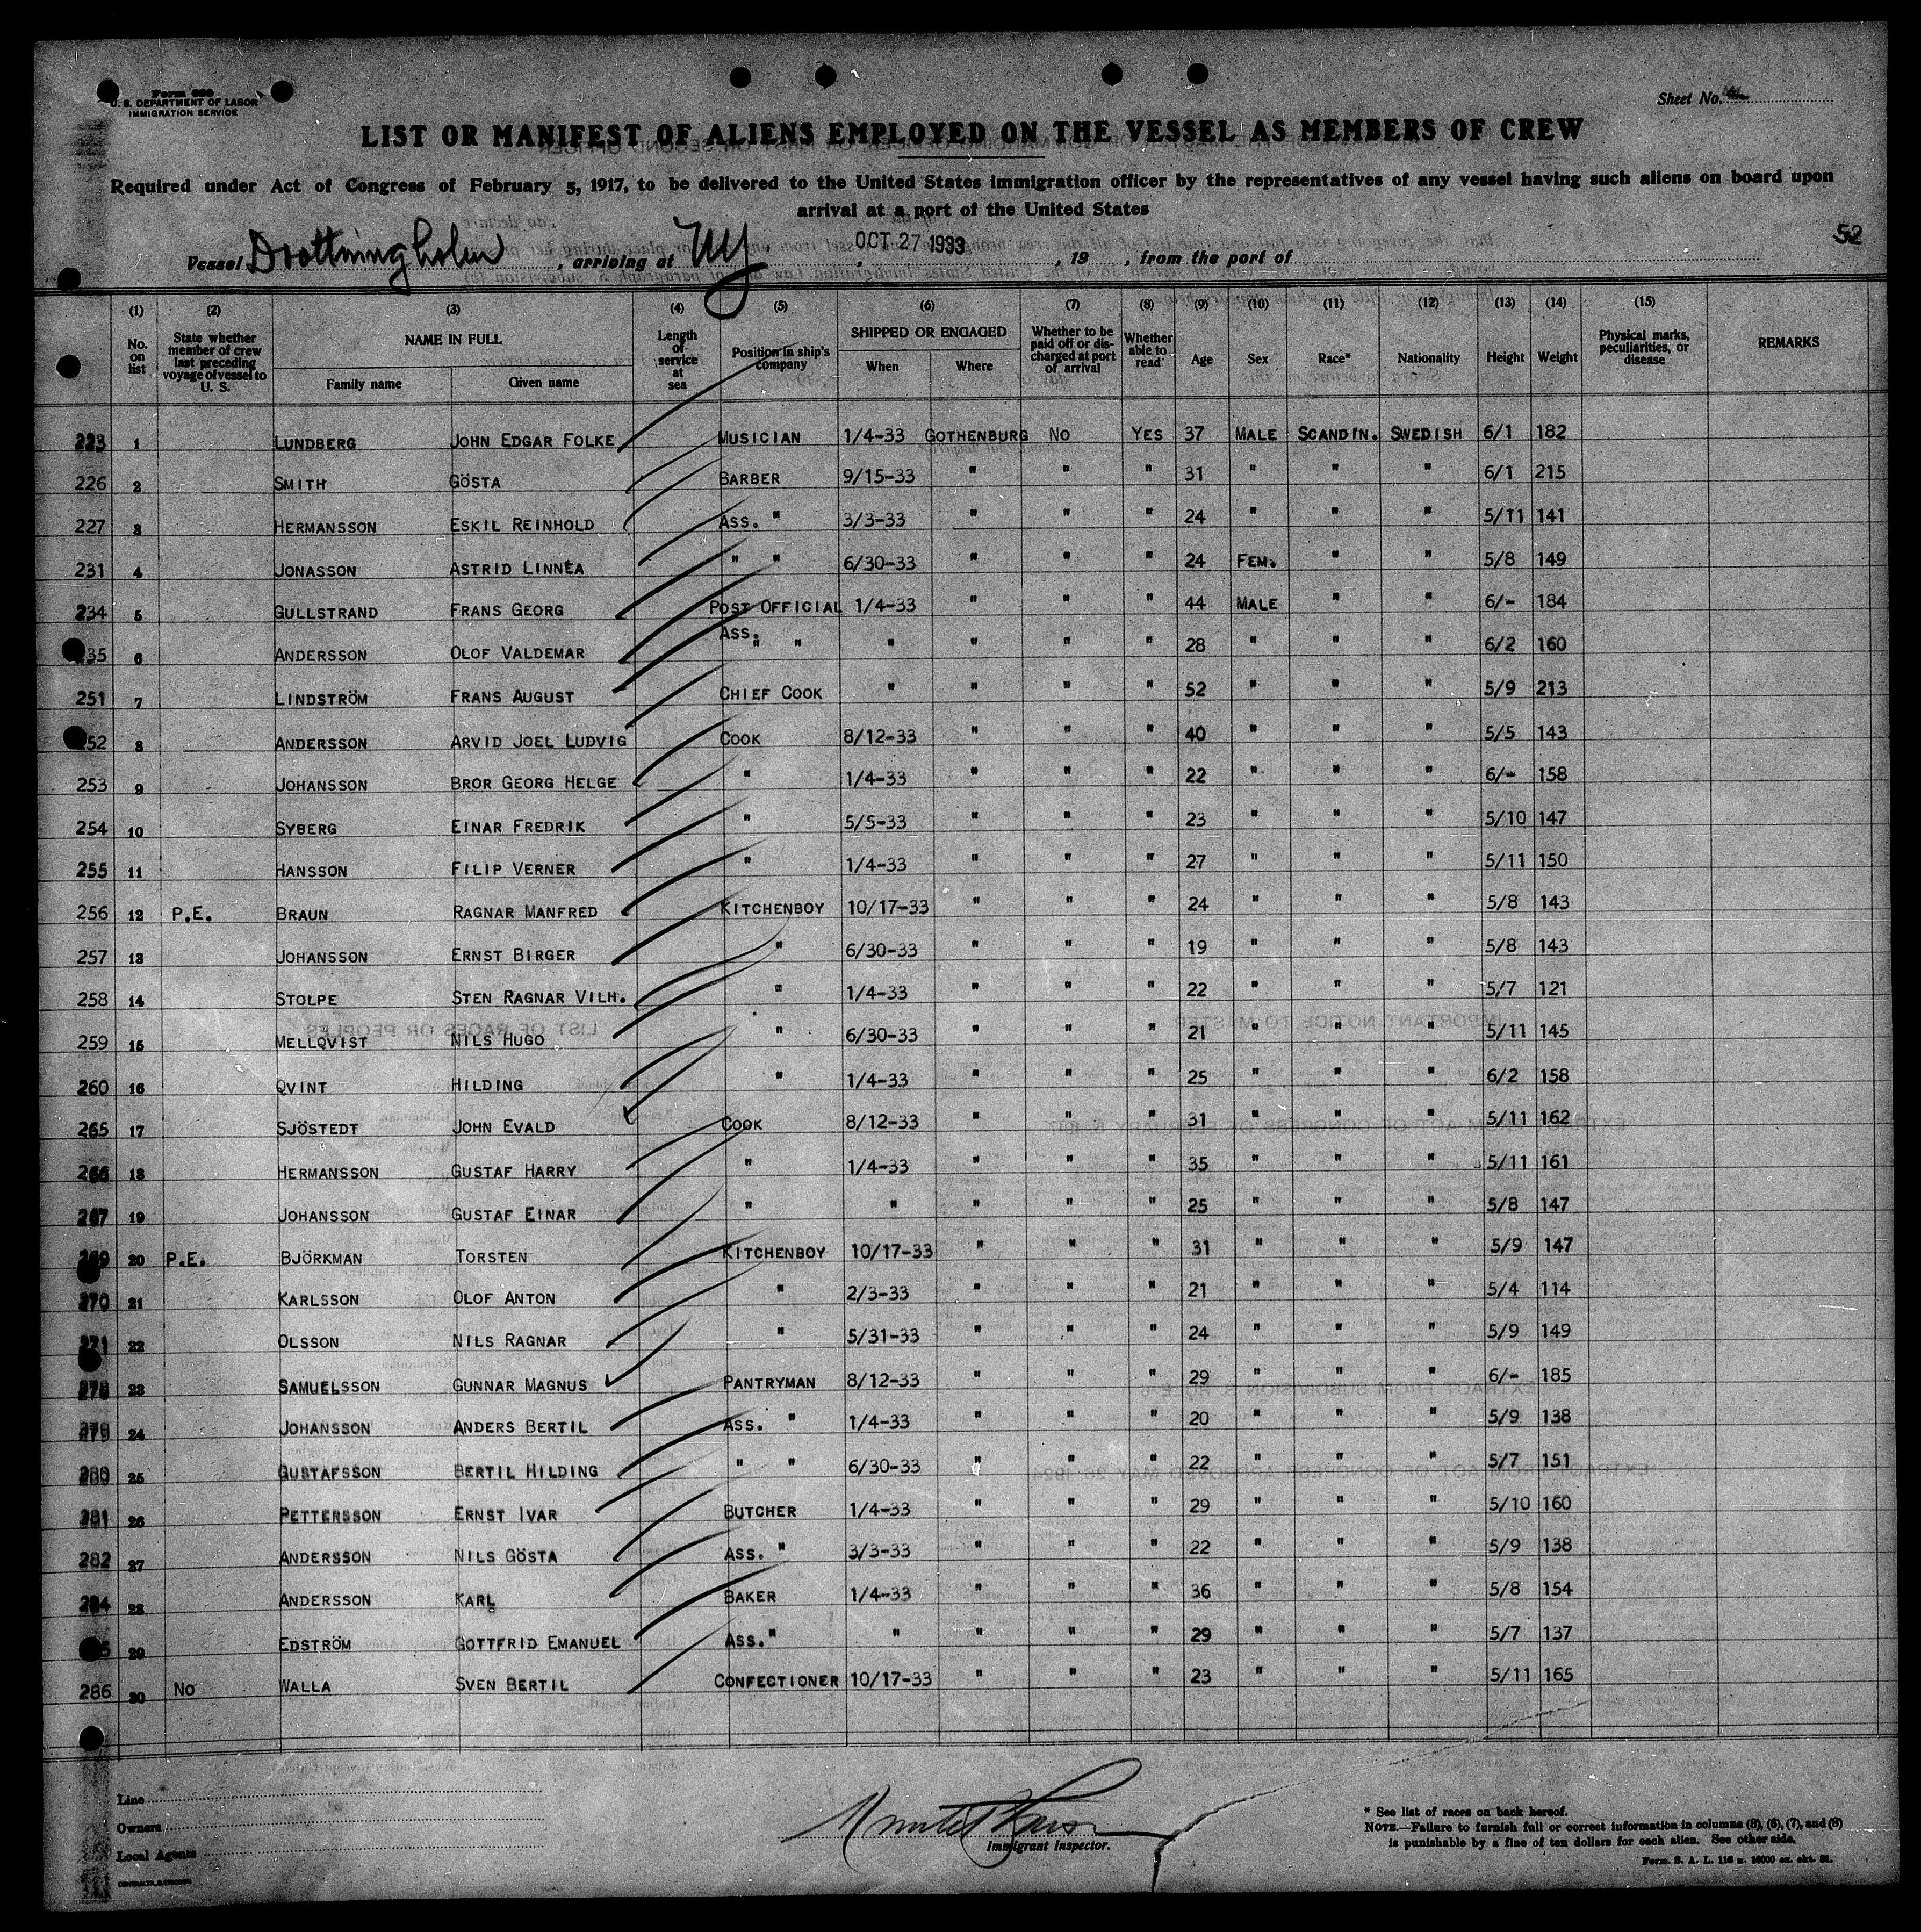 Form 680
U. S. DEPARTMENT OF LABOR
IMMIGRATION SERVICE
Sheet No.
LIST OR MANIFEST OF ALIENS EMPLOYED ON THE VESSEL AS MEMBERS OF CREW
Required under Act of Congress of February 5, 1917, to be delivered to the United States immigration officer by the representatives of any vessel having such aliens on board upon
arrival at a port of the United States
52
Vessel Drottningholm, arriving at NY, OCT 27 1933, 19 , from the port of
(1) (2) (3) (4) (5) (6) (7) (8) (9) (10) (11) (12) (13) (14) (15)
No. on list State whether member of crew last preceding voyage of vessel to U. S. NAME IN FULL Family name Given name Length of service at sea Position in ship's company SHIPPED OR ENGAGED When Where Whether to be paid off or discharged at port of arrival Whether able to read Age Sex Race* Nationality Height Weight Physical marks, peculiarities, or disease REMARKS
223 1 LUNDBERG JOHN EDGAR FOLKE MUSICIAN 1/4-33 GOTHENBURG NO YES 37 MALE SCANDIN. SWEDISH 6/1 182
226 2 SMITH GÖSTA BARBER 9/15-33 " " " 31 " " " 6/1 215
227 3 HERMANSSON ESKIL REINHOLD ASS. " 3/3-33 " " " 24 " " " 5/11 141
231 4 JONASSON ASTRID LINNÉA " " 6/30-33 " " " 24 FEM. " " 5/8 149
234 5 GULLSTRAND FRANS GEORG POST OFFICIAL 1/4-33 " " " 44 MALE " " 6/- 184
235 6 ANDERSSON OLOF VALDEMAR ASS. " " " " " " 28 " " " 6/2 160
251 7 LINDSTRÖM FRANS AUGUST CHIEF COOK " " " " 52 " " " 5/9 213
252 8 ANDERSSON ARVID JOEL LUDVIG COOK 8/12-33 " " " 40 " " " 5/5 143
253 9 JOHANSSON BROR GEORG HELGE " 1/4-33 " " " 22 " " " 6/- 158
254 10 SYBERG EINAR FREDRIK " 5/5-33 " " " 23 " " " 5/10 147
255 11 HANSSON FILIP VERNER " 1/4-33 " " " 27 " " " 5/11 150
256 12 P.E. BRAUN RAGNAR MANFRED KITCHENBOY 10/17-33 " " " 24 " " " 5/8 143
257 13 JOHANSSON ERNST BIRGER " 6/30-33 " " " 19 " " " 5/8 143
258 14 STOLPE STEN RAGNAR VILH. " 1/4-33 " " " 22 " " " 5/7 121
259 15 MELLQVIST NILS HUGO " 6/30-33 " " " 21 " " " 5/11 145
260 16 QVINT HILDING " 1/4-33 " " " 25 " " " 6/2 158
265 17 SJÖSTEDT JOHN EVALD COOK 8/12-33 " " " 31 " " " 5/11 162
266 18 HERMANSSON GUSTAF HARRY " 1/4-33 " " " 35 " " " 5/11 161
267 19 JOHANSSON GUSTAF EINAR " " " " " 25 " " " 5/8 147
269 20 P.E. BJÖRKMAN TORSTEN KITCHENBOY 10/17-33 " " " 31 " " " 5/9 147
270 21 KARLSSON OLOF ANTON " 2/3-33 " " " 21 " " " 5/4 114
271 22 OLSSON NILS RAGNAR " 5/31-33 " " " 24 " " " 5/9 149
278 23 SAMUELSSON GUNNAR MAGNUS PANTRYMAN 8/12-33 " " " 29 " " " 6/- 185
279 24 JOHANSSON ANDERS BERTIL ASS. " 1/4-33 " " " 20 " " " 5/9 138
280 25 GUSTAFSSON BERTIL HILDING " " 6/30-33 " " " 22 " " " 5/7 151
281 26 PETTERSSON ERNST IVAR BUTCHER 1/4-33 " " " 29 " " " 5/10 160
282 27 ANDERSSON NILS GÖSTA ASS. " 3/3-33 " " " 22 " " " 5/9 138
284 28 ANDERSSON KARL BAKER 1/4-33 " " " 36 " " " 5/8 154
29 EDSTRÖM GOTTFRID EMANUEL ASS. " " " " " 29 " " " 5/7 137
286 30 NO WALLA SVEN BERTIL CONFECTIONER 10/17-33 " " " 23 " " " 5/11 165
Line
Owners
Local Agents
Immigrant Inspector.
* See list of races on back hereof.
NOTE.—Failure to furnish full or correct information in columns (3), (6), (7), and (8)
is punishable by a fine of ten dollars for each alien. See other side.